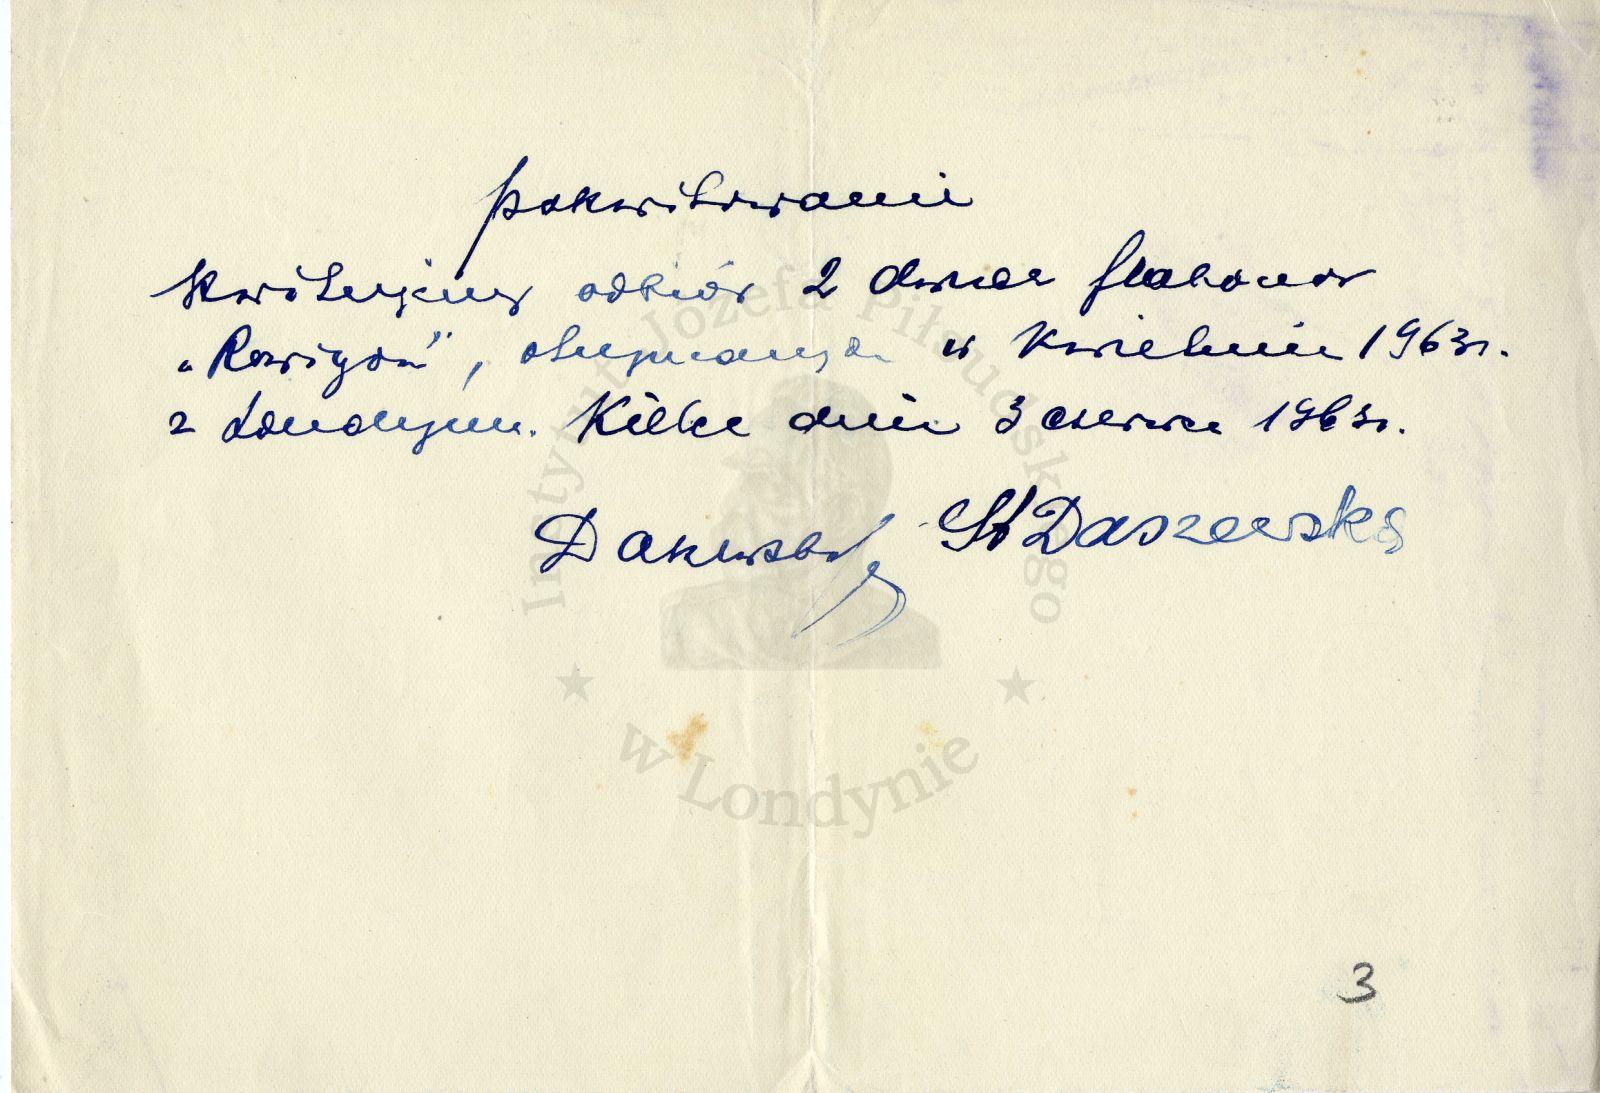 Pokwitowanie
Kwitujemy odbiór 2 dwóch flakonów
„Rowigon", otrzymanych w kwietniu 1963 r.
z Londynu. Kielce dnia 3 czerwca 1963 r.
St Daszewska
Instytut Józefa Piłsudskiego
w Londynie
3